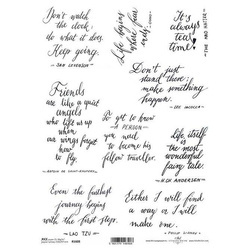 Don't watch
the clock;
do what it does.
Keep going.
- SAM LEVENSON -
Life begins
where fear
ends.
- OSHO -
It's
always
tea
time!
- THE MAD HATTER -
Don't just
stand there;
make something
happen.
- LEE IACOCCA -
Friends
are like a quiet
angels
who lift us up
when
our wings forget
how to
fly.
- ANTOINE DE SAINT-EXUPÉRY -
To get to know
- A PERSON -
you need
to become his
fellow traveller.
Life itself
is the
most
wonderful
fairy tale.
- H. CH. ANDERSEN -
Even the furthest
journey begins
with the first step.
- LAO TZU -
Either I will find
a way or I will
make one.
- PHILIP SIDNEY -